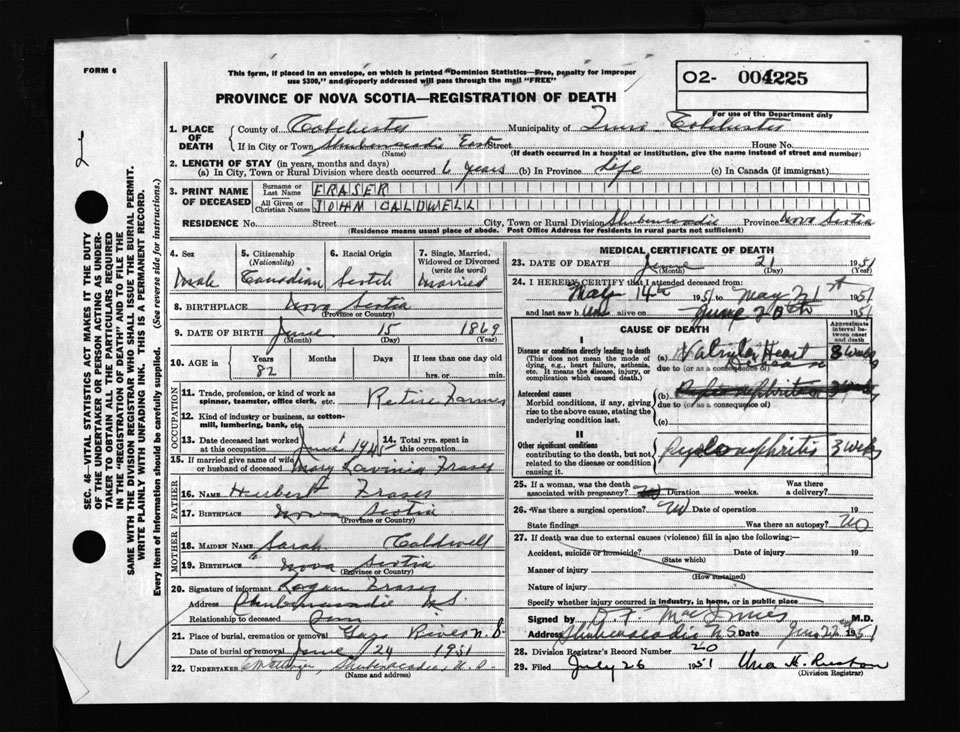 FORM 6
This form, if placed in an envelope, on which is printed "Dominion Statistics—Free, penalty for improper
use $300," and properly addressed will pass through the mail "FREE"
O2- 004225
For use of the Department only
PROVINCE OF NOVA SCOTIA—REGISTRATION OF DEATH
SEC. 46—VITAL STATISTICS ACT MAKES IT THE DUTY
OF THE UNDERTAKER OR PERSON ACTING AS UNDER-
TAKER TO OBTAIN ALL THE PARTICULARS REQUIRED
IN THE "REGISTRATION OF DEATH" AND TO FILE THE
SAME WITH THE DIVISION REGISTRAR WHO SHALL ISSUE THE BURIAL PERMIT.
WRITE PLAINLY WITH UNFADING INK. THIS IS A PERMANENT RECORD.
Every item of information should be carefully supplied. (See reverse side for instructions.)
1. PLACE OF DEATH County of Colchester Municipality of Colchester
If in City or Town Shubenacadie East Street House No.
(Name) (If death occurred in a hospital or institution, give the name instead of street and number)
2. LENGTH OF STAY (in years, months and days)
(a) In City, Town or Rural Division where death occurred 6 years (b) In Province Life (c) In Canada (if immigrant)
3. PRINT NAME OF DECEASED Surname or Last Name FRASER
All Given or Christian Names JOHN CALDWELL
RESIDENCE No. Street City, Town or Rural Division Shubenacadie Province Nova Scotia
(Residence means usual place of abode. Post Office Address for residents in rural parts not sufficient)
4. Sex Male
5. Citizenship (Nationality) Canadian
6. Racial Origin Scotch
7. Single, Married, Widowed or Divorced (write the word) Married
8. BIRTHPLACE Nova Scotia
(Province or Country)
9. DATE OF BIRTH June 15 1869
(Month) (Day) (Year)
10. AGE in Years 82 Months Days If less than one day old hrs. or min.
OCCUPATION
11. Trade, profession, or kind of work as spinner, teamster, office clerk, etc. Retire Farmer
12. Kind of industry or business, as cotton-mill, lumbering, bank, etc.
13. Date deceased last worked at this occupation June 1 1945
14. Total yrs. spent in this occupation
15. If married give name of wife or husband of deceased Mary Lavinia Fraser
FATHER
16. NAME Fraser
17. BIRTHPLACE Nova Scotia
(Province or Country)
MOTHER
18. MAIDEN NAME Sarah Caldwell
19. BIRTHPLACE Nova Scotia
(Province or Country)
20. Signature of informant Logan Fraser
Address Shubenacadie N S.
Relationship to deceased Son
21. Place of burial, cremation or removal Gays River N. S.
Date of burial or removal June 24 1951
22. UNDERTAKER Shubenacadie, N. S.
(Name and address)
MEDICAL CERTIFICATE OF DEATH
23. DATE OF DEATH June 21 1951
(Month) (Day) (Year)
24. I HEREBY CERTIFY that I attended deceased from:
May 14th 1951 to May 21st 1951
and last saw him alive on June 20th 1951
CAUSE OF DEATH
Approximate interval between onset and death
I
Disease or condition directly leading to death
(This does not mean the mode of dying, e.g., heart failure, asthenia, etc. It means the disease, injury, or complication which caused death.)
(a) Valvular Heart Disease 8 weeks
due to (or as a consequence of)
Antecedent causes
Morbid conditions, if any, giving rise to the above cause, stating the underlying condition last.
(b) Pyelonephritis
due to (or as a consequence of)
(c)
II
Other significant conditions
contributing to the death, but not related to the disease or condition causing it.
Pyelonephritis 3 weeks
25. If a woman, was the death associated with pregnancy? No Duration weeks. Was there a delivery?
26. Was there a surgical operation? No Date of operation 19
State findings Was there an autopsy? No
27. If death was due to external causes (violence) fill in also the following:—
Accident, suicide or homicide? Date of injury 19
(State which)
Manner of injury
(How sustained)
Nature of injury
Specify whether injury occurred in industry, in home, or in public place
Signed by MacInnes M.D.
Address Shubenacadie N. S. Date June 22 1951
28. Division Registrar's Record Number 20
29. Filed July 26 1951 Una H.
(Division Registrar)